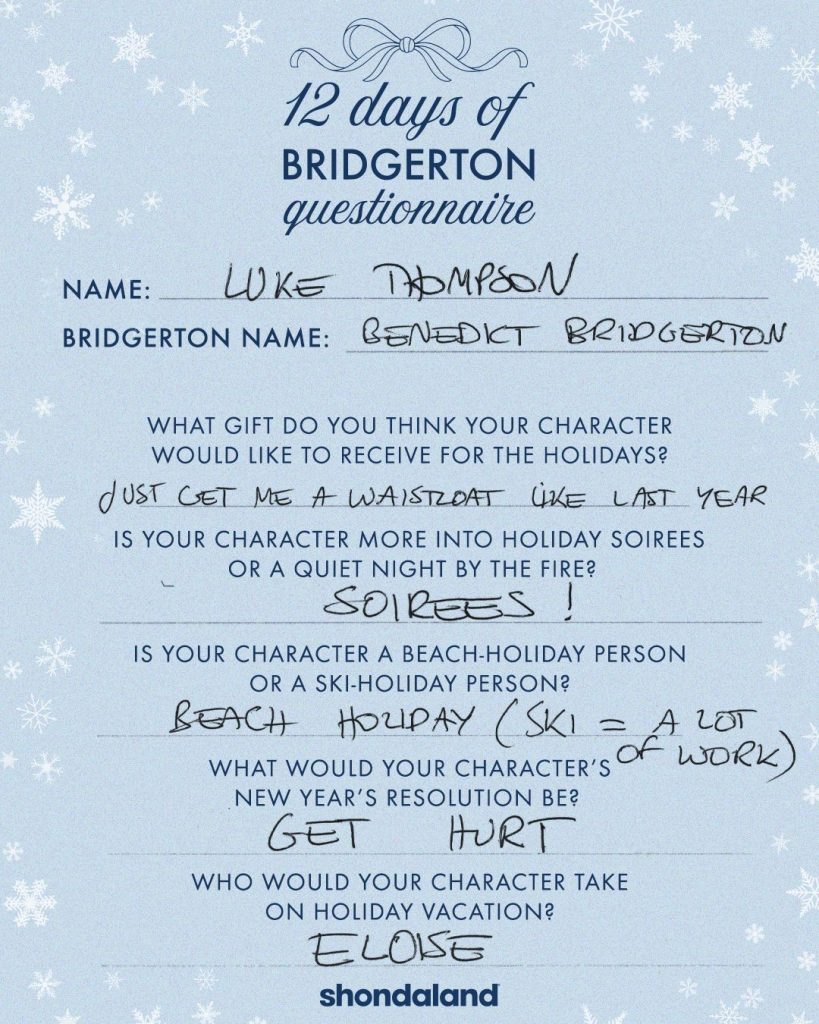 12 days of
BRIDGERTON
questionnaire
NAME: LUKE THOMPSON
BRIDGERTON NAME: BENEDICT BRIDGERTON
WHAT GIFT DO YOU THINK YOUR CHARACTER
WOULD LIKE TO RECEIVE FOR THE HOLIDAYS?
JUST GET ME A WAISTCOAT LIKE LAST YEAR
IS YOUR CHARACTER MORE INTO HOLIDAY SOIREES
OR A QUIET NIGHT BY THE FIRE?
SOIREES!
IS YOUR CHARACTER A BEACH-HOLIDAY PERSON
OR A SKI-HOLIDAY PERSON?
BEACH HOLIDAY (SKI = A LOT
OF WORK)
WHAT WOULD YOUR CHARACTER'S
NEW YEAR'S RESOLUTION BE?
GET HURT
WHO WOULD YOUR CHARACTER TAKE
ON HOLIDAY VACATION?
ELOISE
shondaland